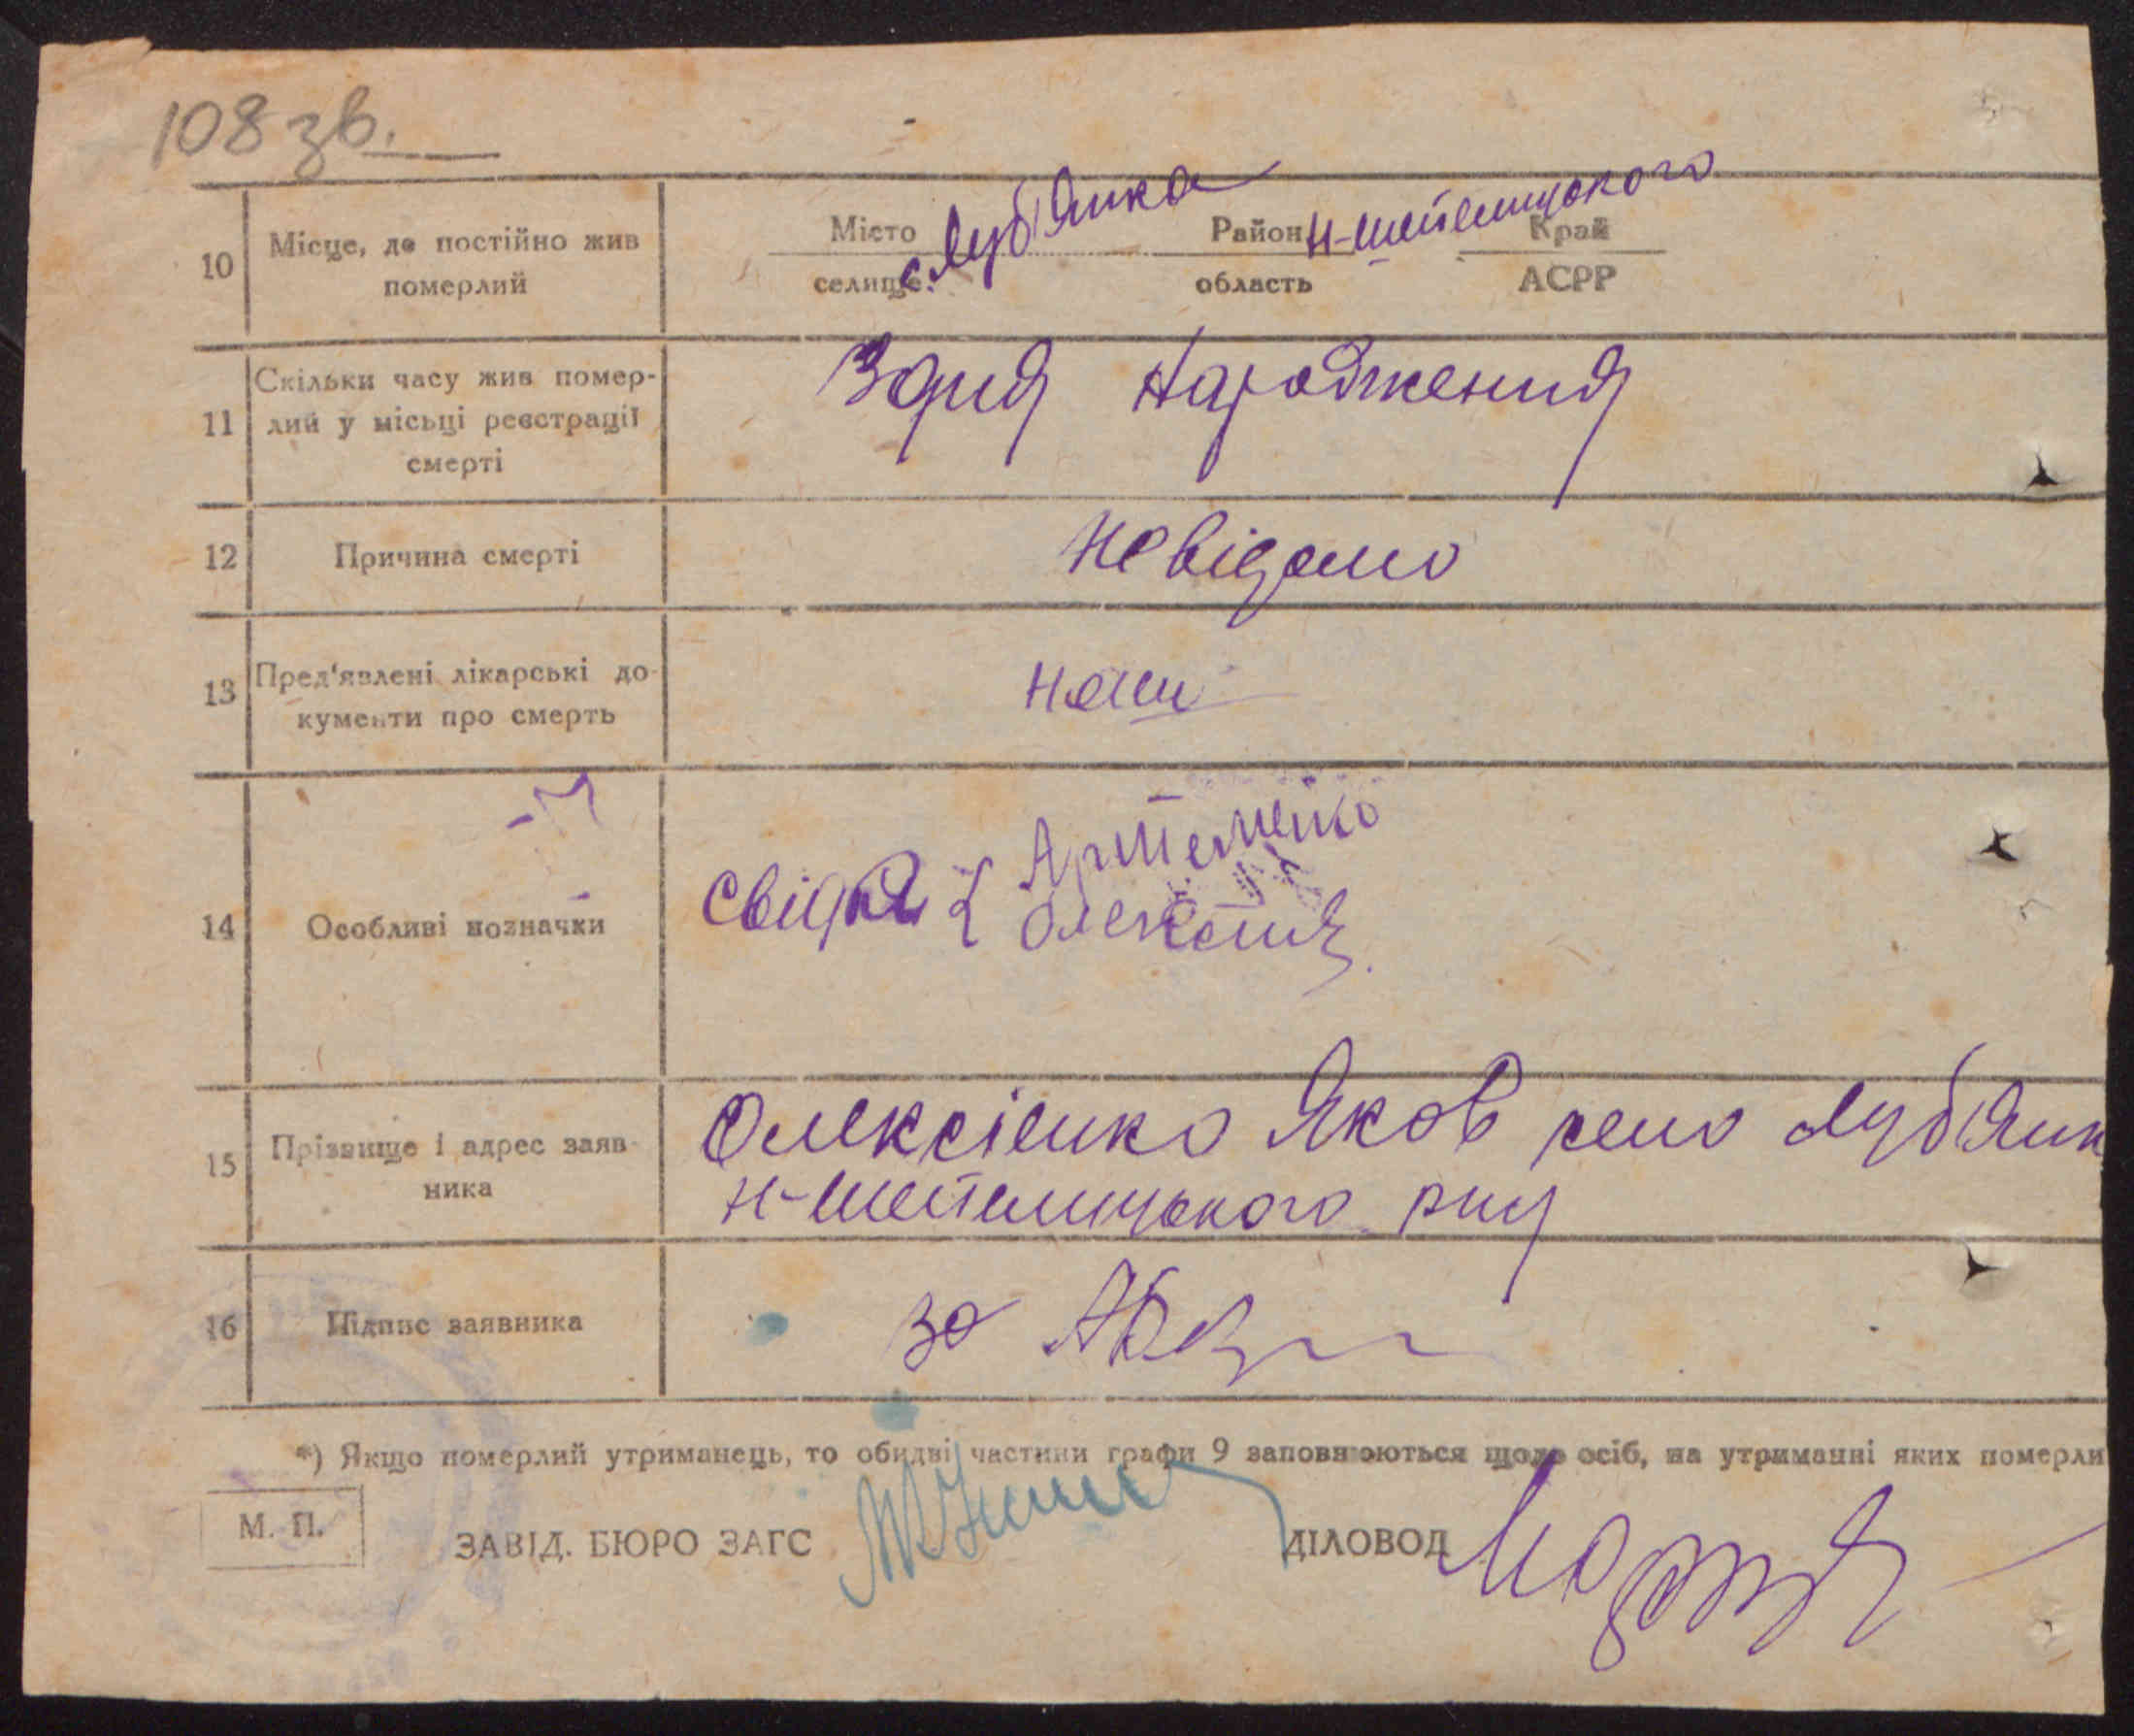 108 зв.
10 Місце, де постійно жив померлий
Місто селище с. Луб'янка Район область Н-Шепелицького Край АСРР
11 Скільки часу жив помер-
лий у місьці реєстрації
смерті
Здня народження
12 Причина смерті невідомо
13 Пред'явлені лікарські до-
кументи про смерть
14 Особливі позначки
свідки { Артеменко
15 Прізвище і адрес заяв-
ника
Олексієнко Яков село Луб'янк
Н-Шепелицького рну
16 Підпис заявника
за
*) Якщо померлий утриманець, то обидві частини графи 9 заповнюються щодо осіб, на утриманні яких померли
М. П.
ЗАВІД. БЮРО ЗАГС
ДІЛОВОД